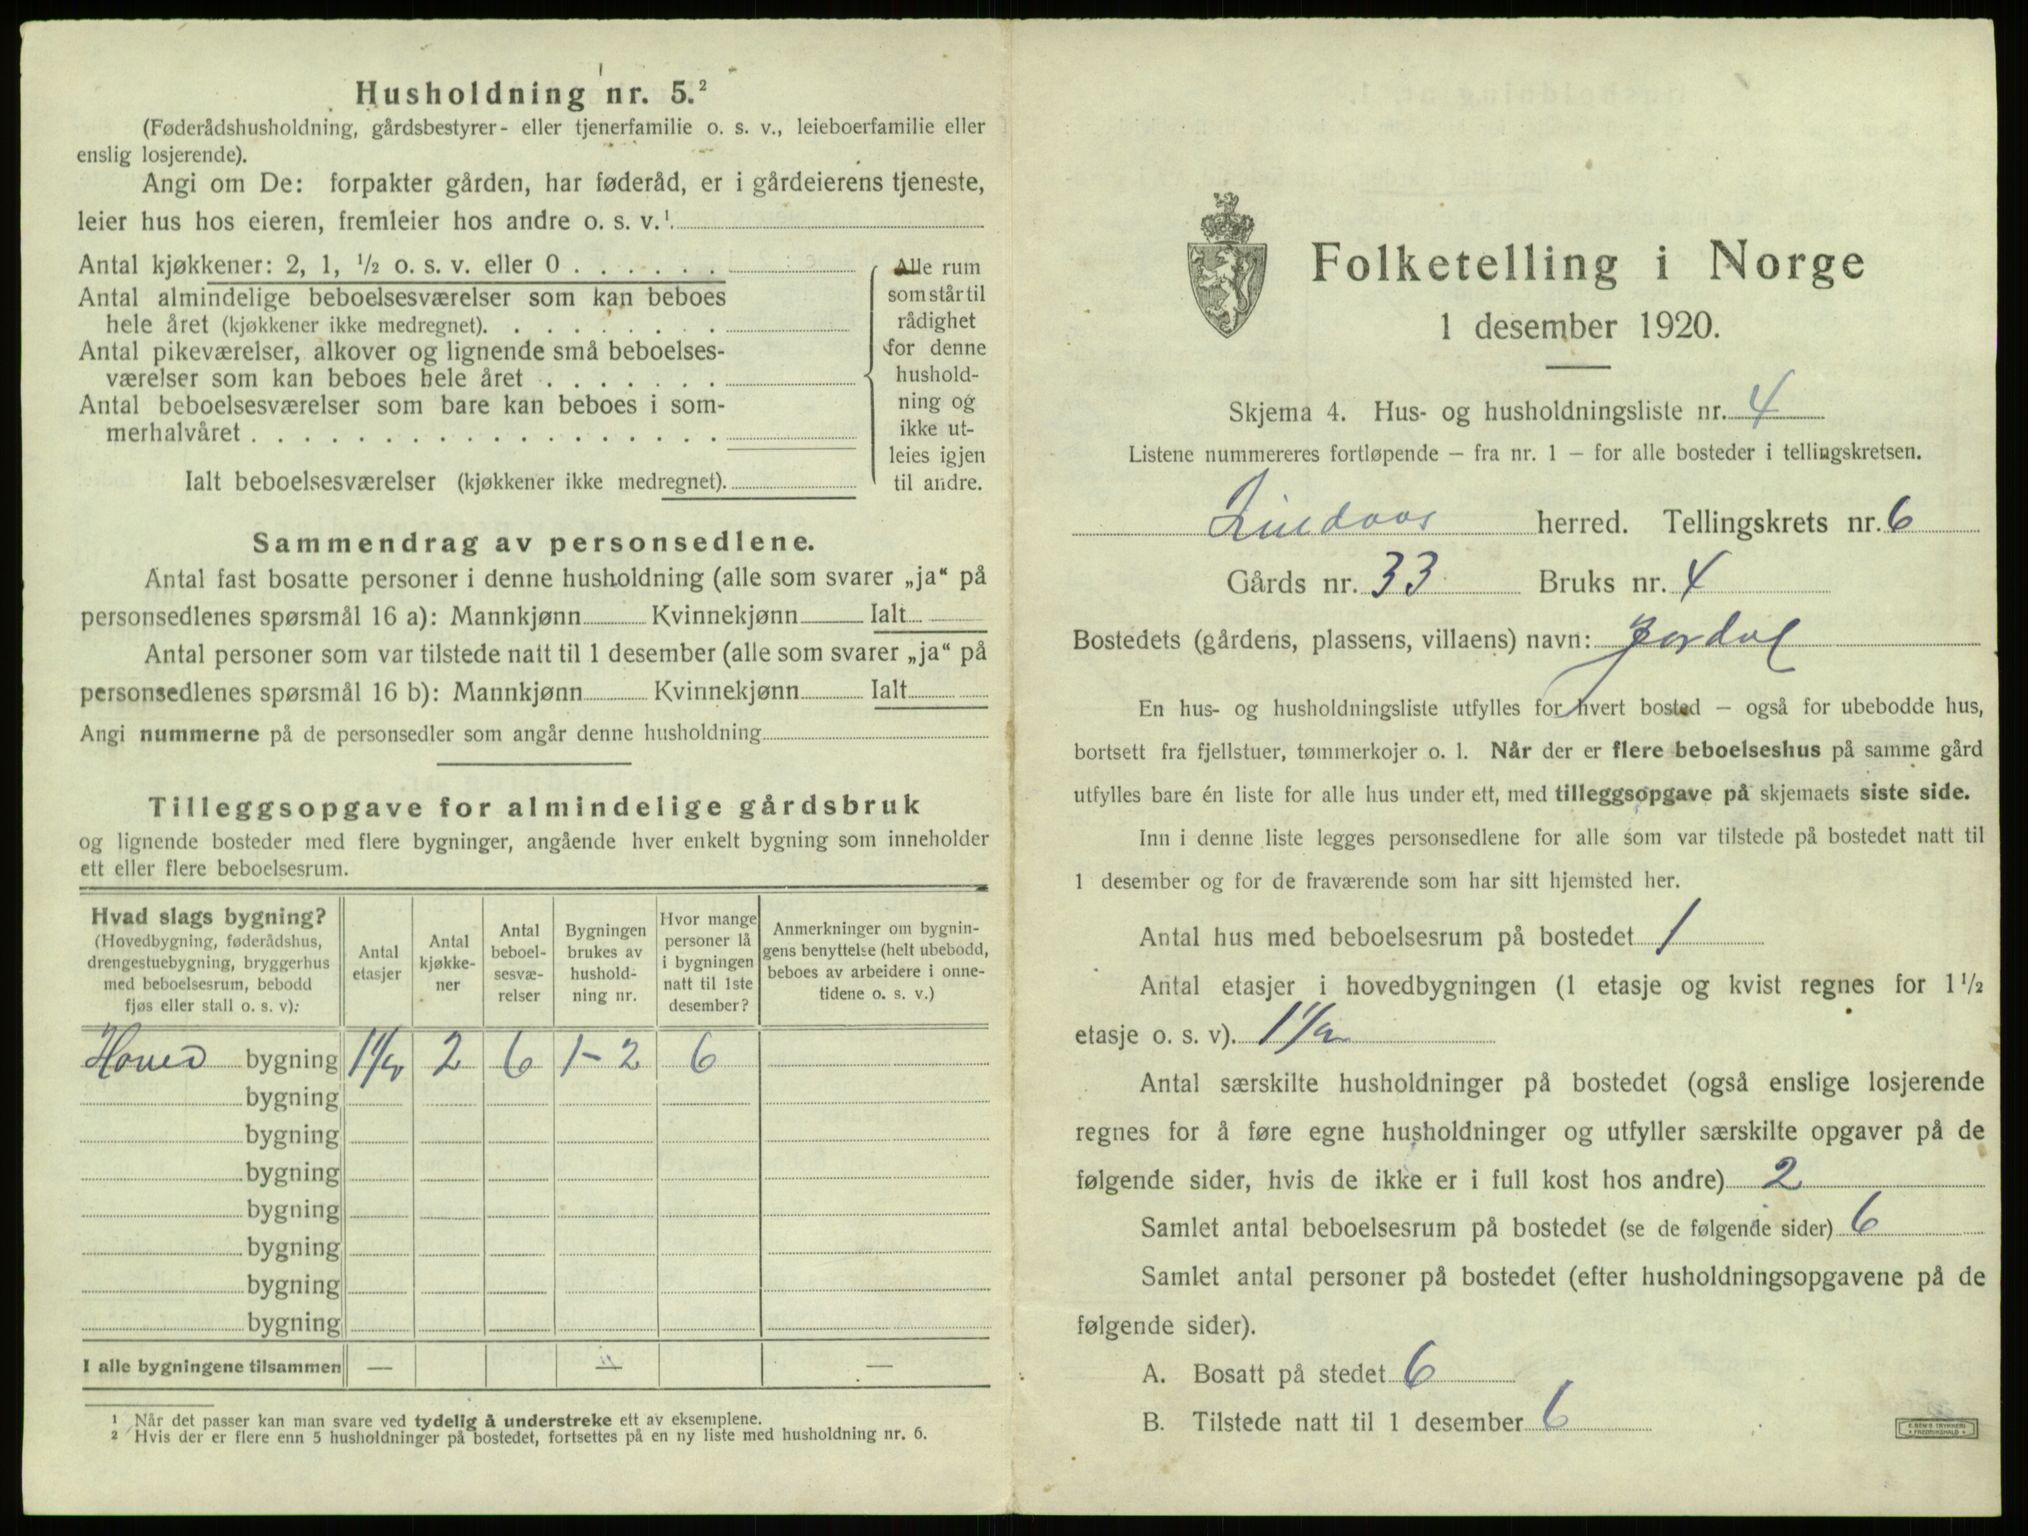 Husholdning nr. 5.²
(Føderådshusholdning, gårdsbestyrer- eller tjenerfamilie o. s. v., leieboerfamilie eller
enslig losjerende).
Angi om De: forpakter gården, har føderåd, er i gårdeierens tjeneste,
leier hus hos eieren, fremleier hos andre o. s. v.¹.
Antal kjøkkener: 2, 1, ½ o. s. v. eller 0 . . . . . .
Antal almindelige beboelsesværelser som kan beboes
hele året (kjøkkener ikke medregnet). . . . . . . . .
Antal pikeværelser, alkover og lignende små beboelses-
værelser som kan beboes hele året . . . . . . .
Antal beboelsesværelser som bare kan beboes i som-
merhalvåret . . . . . . . . . . . . . . . . . .
Ialt beboelsesværelser (kjøkkener ikke medregnet).
Alle rum
som står til
rådighet
for denne
hushold-
ning og
ikke ut-
leies igjen
til andre.
Sammendrag av personsedlene.
Antal fast bosatte personer i denne husholdning (alle som svarer „ja“ på
personsedlenes spørsmål 16 a): Mannkjønn Kvinnekjønn Ialt
Antal personer som var tilstede natt til 1 desember (alle som svarer „ja“ på
personsedlenes spørsmål 16 b): Mannkjønn Kvinnekjønn Ialt
Angi nummerne på de personsedler som angår denne husholdning
Tilleggsopgave for almindelige gårdsbruk
og lignende bosteder med flere bygninger, angående hver enkelt bygning som inneholder
ett eller flere beboelsesrum.
Hvad slags bygning?
(Hovedbygning, føderådshus,
drengestuebygning, bryggerhus
med beboelsesrum, bebodd
fjøs eller stall o. s. v):
Antal
etasjer
Antal
kjøkke-
ner
Antal
beboel-
sesvæ-
relser
Bygningen
brukes av
hushold-
ning nr.
Hvor mange
personer lå
i bygningen
natt til 1ste
desember?
Anmerkninger om bygnin-
gens benyttelse (helt ubebodd,
beboes av arbeidere i onne-
tidene o. s. v.)
Hoved bygning 1½ 2 6 1-2 6
bygning
bygning
bygning
bygning
bygning
bygning
bygning
I alle bygningene tilsammen — — —
¹ Når det passer kan man svare ved tydelig å understreke ett av eksemplene.
² Hvis der er flere enn 5 husholdninger på bostedet, fortsettes på en ny liste med husholdning nr. 6.
Folketelling i Norge
1 desember 1920.
Skjema 4. Hus- og husholdningsliste nr. 4
Listene nummereres fortløpende – fra nr. 1 – for alle bosteder i tellingskretsen.
Lindaas herred. Tellingskrets nr. 6
Gårds nr. 33 Bruks nr. 4
Bostedets (gårdens, plassens, villaens) navn: Jordal
En hus- og husholdningsliste utfylles for hvert bosted – også for ubebodde hus,
bortsett fra fjellstuer, tømmerkojer o. l. Når der er flere beboelseshus på samme gård
utfylles bare én liste for alle hus under ett, med tilleggsopgave på skjemaets siste side.
Inn i denne liste legges personsedlene for alle som var tilstede på bostedet natt til
1 desember og for de fraværende som har sitt hjemsted her.
Antal hus med beboelsesrum på bostedet 1
Antal etasjer i hovedbygningen (1 etasje og kvist regnes for 1½
etasje o. s. v). 1½
Antal særskilte husholdninger på bostedet (også enslige losjerende
regnes for å føre egne husholdninger og utfyller særskilte opgaver på de
følgende sider, hvis de ikke er i full kost hos andre) 2
Samlet antal beboelsesrum på bostedet (se de følgende sider) 6
Samlet antal personer på bostedet (efter husholdningsopgavene på de
følgende sider).
A. Bosatt på stedet 6
B. Tilstede natt til 1 desember 6
E. SEM'S TRYKKERI
FREDRIKSHALD